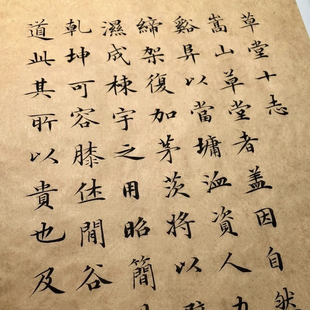 草堂十志
嵩山草堂者蓋因自然
谿以當墉洫資人力
締架復加茅茨將以
濕成棟宇之用昭簡
乾坤可容膝休閒谷
道此其所以貴也及